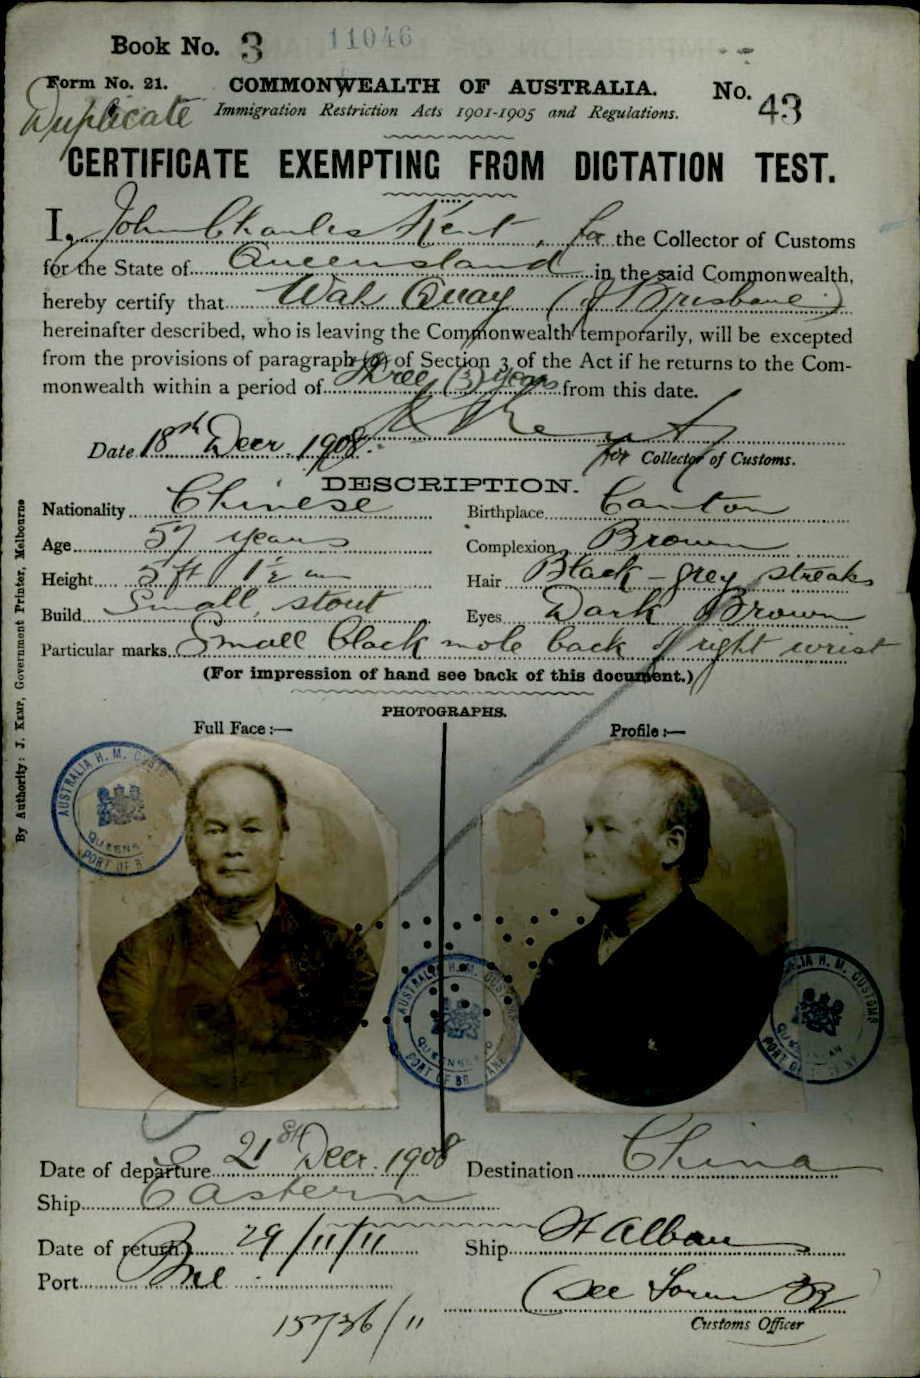 Book No. 3 11046
Form No. 21. COMMONWEALTH OF AUSTRALIA. No. 43
Duplicate Immigration Restriction Acts 1901-1905 and Regulations.
CERTIFICATE EXEMPTING FROM DICTATION TEST.
I, John Charles Kent, for the Collector of Customs
for the State of Queensland in the said Commonwealth,
hereby certify that Wah Quay (of Brisbane)
hereinafter described, who is leaving the Commonwealth temporarily, will be excepted
from the provisions of paragraph (a) of Section 3 of the Act if he returns to the Com-
monwealth within a period of three (3) years from this date.
Date 18th Decr. 1908. Kent
for Collector of Customs.
DESCRIPTION.
Nationality Chinese Birthplace Canton
Age 57 years Complexion Brown
Height 5 ft 1½ in Hair Black - grey streaks
Build Small, stout Eyes Dark Brown
Particular marks Small black mole back of right wrist
(For impression of hand see back of this document.)
PHOTOGRAPHS.
Full Face :— Profile :—
AUSTRALIA H. M. CUSTOMS
QUEENSLAND
PORT OF BRISBANE
AUSTRALIA H. M. CUSTOMS
QUEENSLAND
PORT OF BRISBANE
AUSTRALIA H. M. CUSTOMS
QUEENSLAND
PORT OF BRISBANE
Date of departure 21st Decr. 1908 Destination China
Ship Eastern
Date of return 29/11/11 Ship St Albans
Port Bne
(See Form 32)
15736/11 Customs Officer
By Authority: J. KEMP, Government Printer, Melbourne